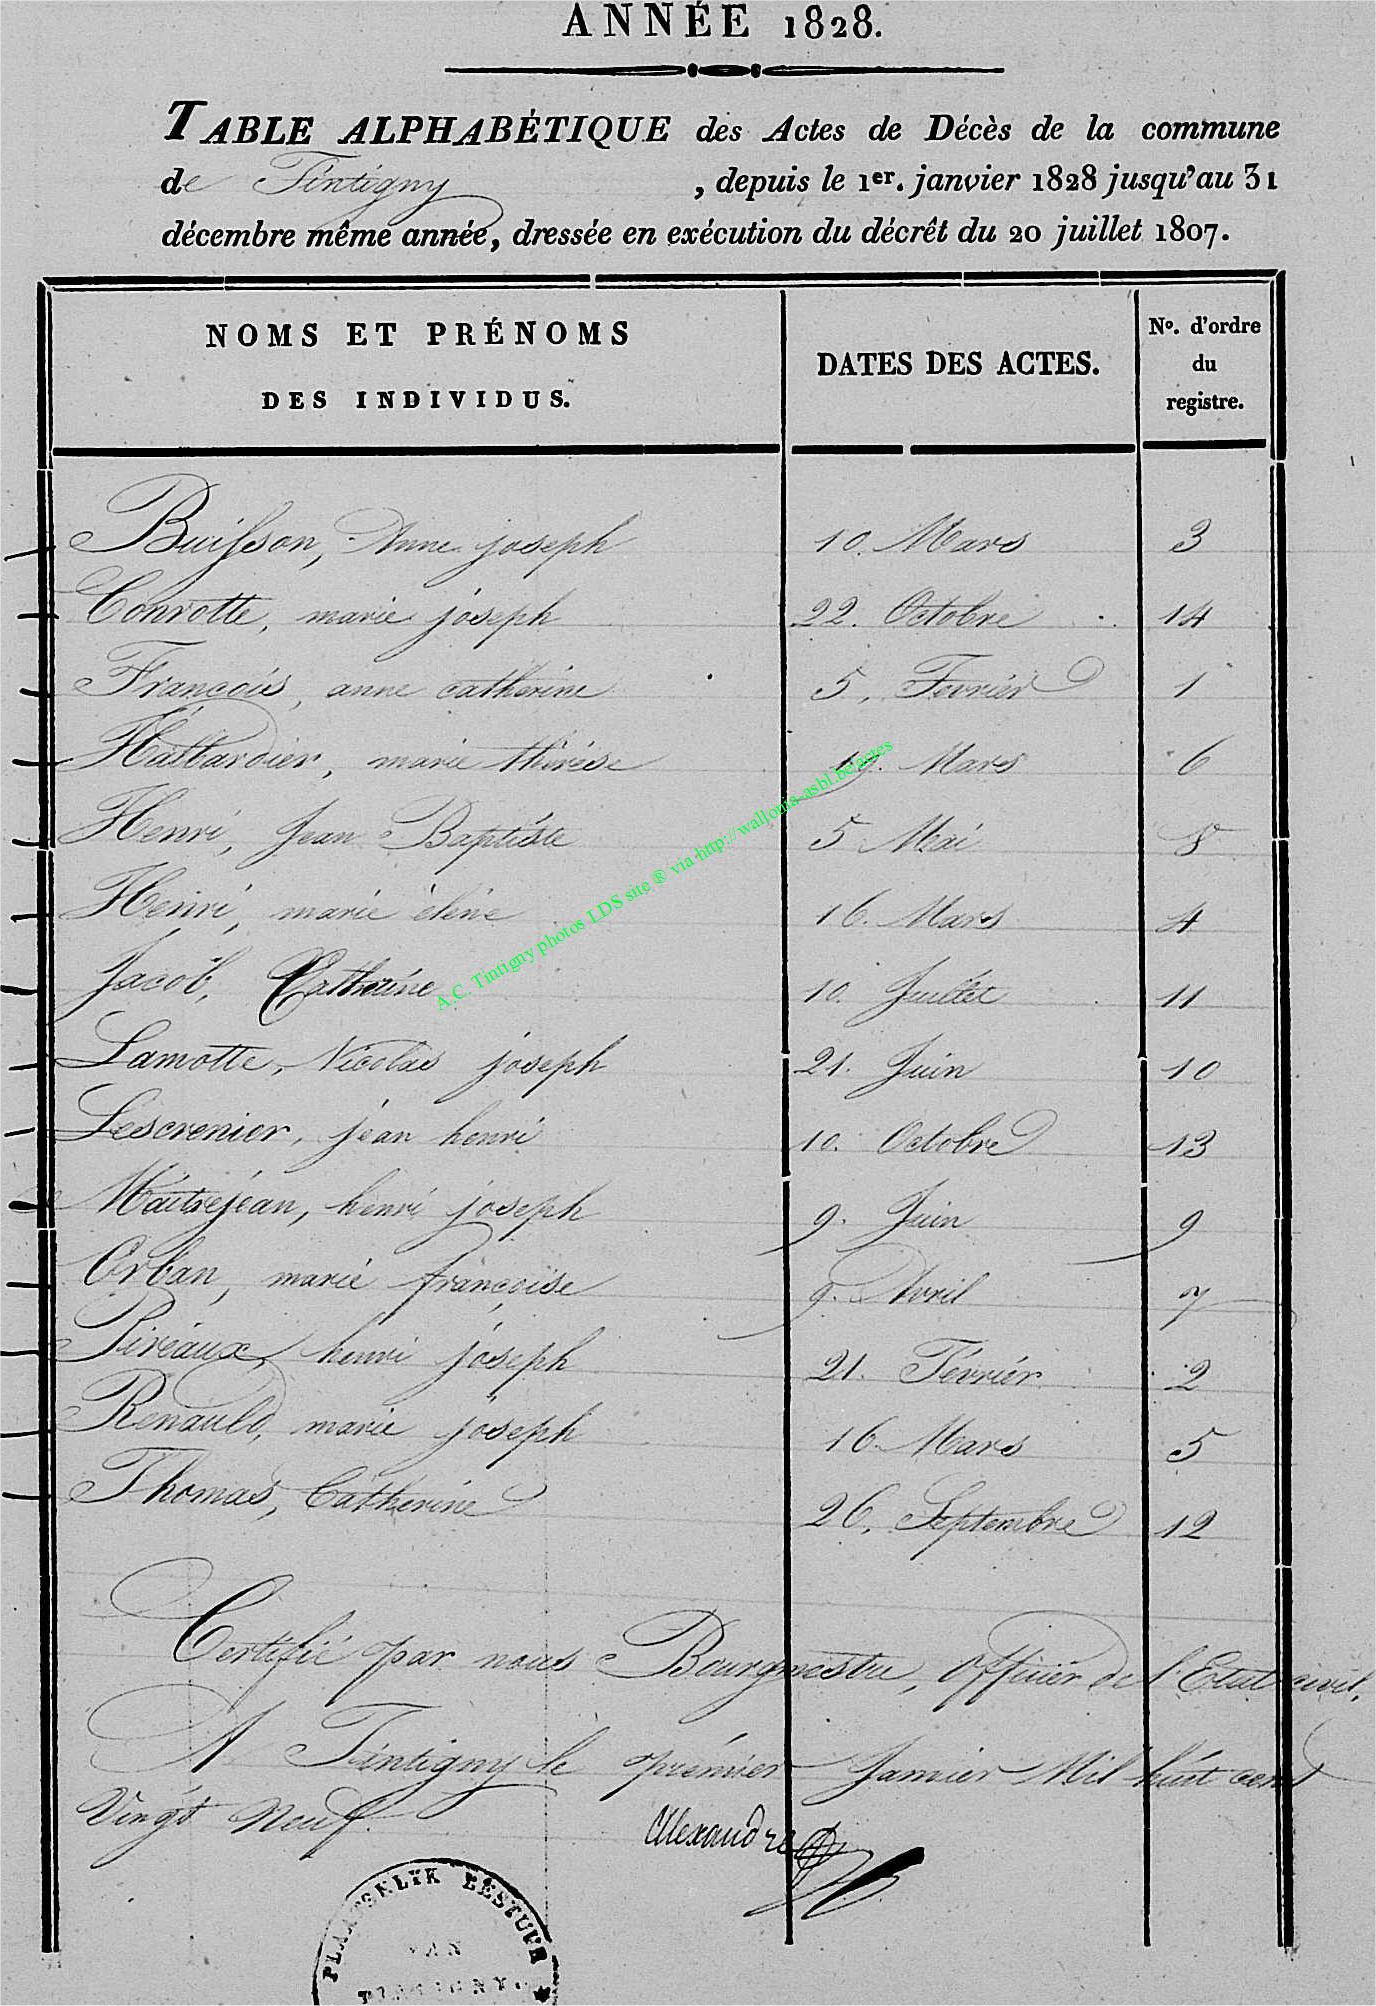 ANNÉE 1828.
TABLE ALPHABÉTIQUE des Actes de Décès de la commune
de Tintigny , depuis le 1er. janvier 1828 jusqu'au 31
décembre même année, dressée en exécution du décrêt du 20 juillet 1807.
NOMS ET PRÉNOMS
DES INDIVIDUS.
DATES DES ACTES.
No. d'ordre
du
registre.
Buisson, Anne joseph 10. Mars 3
Conrotte, marie joseph 22. Octobre 14
François, anne catherine 5. Fevrier 1
Hattardier, marie thérése 19. Mars 6
Henri, Jean Baptiste 5 Mai 8
Henri, marie éléne 16. Mars 4
Jacob, Catherine 10. Juillet 11
Lamotte, Nicolas joseph 21. Juin 10
Lescrenier, jean henri 10. Octobre 13
Maitrejean, henri joseph 9. Juin 9
Orban, marie françoise 9. Avril 7
Piréaux, henri joseph 21. Février 2
Renauld, marie joseph 16. Mars 5
Thomas, Catherine 26. Septembre 12
Certifié par nous Bourgmestre, officier de l'Etat civil,
A Tintigny le prémier Janvier Mil huit cent
Vingt Neuf.
Alexandre
PLAATSELYK BESTUUR
VAN
TINTIGNY
A.C. Tintigny photos LDS site ® via http://wallonia-asbl.be/actes